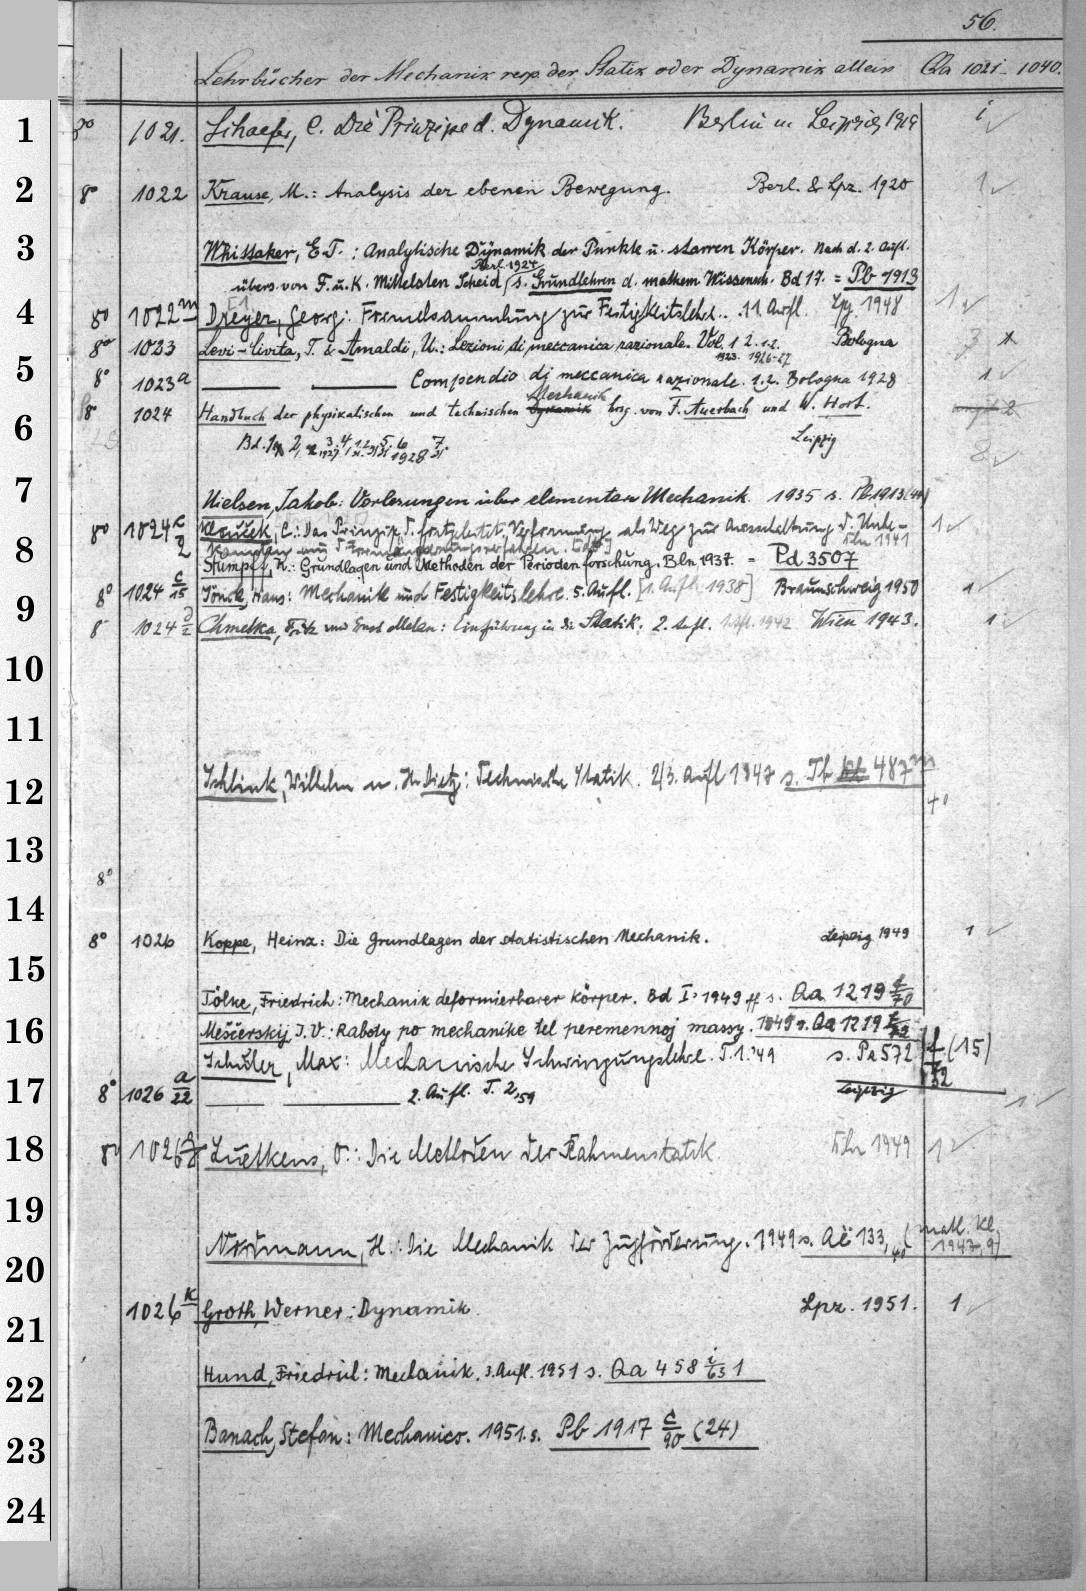 56.
Lehrbücher der Mechanik resp. der Statik oder Dynamik allein Qa 1021-1040.
1 8° 1021. Schaefer, C. Die Prinzipe d. Dynamik. Berlin u. Leipzig 1919 1
2 8° 1022 Krause, M.: Analysis der ebenen Bewegung. Berl. & Lpz. 1920 1
3 Whittaker, E.T.: Analytische Dynamik der Punkte u. starren Körper. Nach d. 2. Aufl.
übers. von F. u. K. Mittelsten Scheid, Berl. 1924 s. Grundlehren d. mathem. Wissensch. Bd 17. = Pb 1913
4 8° 1022 m Dreyer, Georg: Formelsammlung zur Festigkeitslehre. 11. Aufl. Lpg. 1948 1
8° 1023 Levi-Civita, T. & Amaldi, U.: Lezioni di meccanica razionale. Vol. 1 2.1.2. Bologna 3
1923. 1926-27
5 8° 1023 a Compendio di meccanica razionale. 1.2. Bologna 1928 1
Mechanik
6 8° 1024 Handbuch der physikalischen und technischen Dynamik hrsg. von F. Auerbach und W. Hort. 2
Leipzig 8
7 Nielsen, Jakob: Vorlesungen über elementare Mechanik. 1935 s. Pb 1913 (44)
8° 1024 c/2 C.: Das Prinzip d. fortgeleitet. Verformung als Weg zur Ausschaltung d. Unbe- 1
Bln 1941
8 Stumpff, K.: Grundlagen und Methoden der Periodenforschung. Bln 1937. = Pd 3507
9 8° 1024 c/15 Hans: Mechanik und Festigkeitslehre. 5. Aufl. [1. Aufl. 1938] Braunschweig 1950 1
8° 1024 Chmelka, Fritz und Ernst Melan: Einführung in die Statik. 2. Aufl. 1. Aufl. 1942 Wien 1943. 1
10
11
12 Schlink, Wilhelm u. H. Dietz: Technische Statik. 2/3. Aufl 1947 s. Tb 487 m
13
8°
14
8° 1026 Koppe, Heinz: Die Grundlagen der statistischen Mechanik. Leipzig 1949 1
15
Tölke, Friedrich: Mechanik deformierbarer Körper. Bd I. 1949 ff s. Qa 1219 f/70
16 Meščerskij, I.V.: Raboty po mechanike tel peremennoj massy. 1949 s. Qa 1219
Schuler, Max: Mechanische Schwingungslehre. T. 1. '49 s. Pa 572 (15)
17 8° 1026 a/22 2. Aufl. T. 2, 59 Leipzig 1
18 8° 1026 Luetkens, O.: Die Methoden der Rahmenstatik. Bln 1949 1
19
20 Nordmann, H.: Die Mechanik der Zugförderung. 1949 s. Aë 133, 40 (math. Kl. 1947, 9)
21 1026 k Groth, Werner: Dynamik. Lpz. 1951. 1
22 Hund, Friedrich: Mechanik. 3. Aufl. 1951 s. Qa 458 i/65 1
23 Banach, Stefan: Mechanics. 1951. s. Pb 1917 c/90 (24)
24